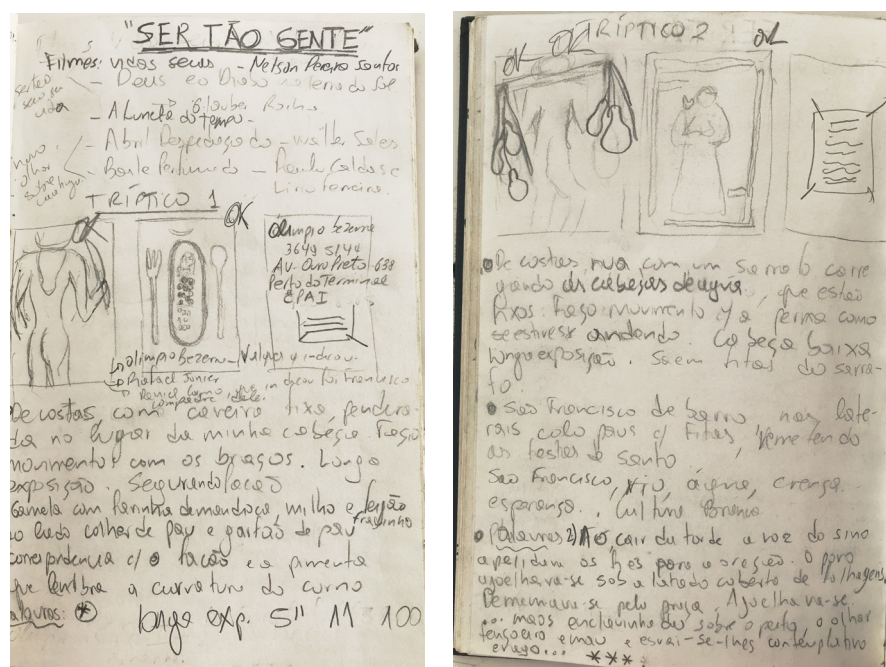 "SER TÃO GENTE"
Filmes: vidas secas - Nelson Pereira Santos
- Deus e o Diabo na terra do Sol
Glauber Rocha
sertão
seco sem
vida
- A Luneta do tempo -
- Abril Despedaçado - Walter Sales
novo
olhar
sobre
- Baile Perfumado - Paulo Caldas e
Lírio Ferreira.
TRÍPTICO 1
OK
Olimpio Bezerra
3649 5144
Av. Ouro Preto 638
Perto do Terminal
CPAI
Olimpio Bezerra - Valques indicou.
Rafael Junior
Daniel que indicou foi Francisco
compadre dele.
De costas, com caveira fixa, pendura-
da no lugar da minha cabeça. Faço
movimentos com os braços. Longa
exposição. Segurando facão
Gamela com farinha de mandioca, milho e feijão
ao lado colher de pau e garfão de pau
correspondencia c/ o facão e a pimenta
que lembra a curvatura do corno
palavras: *
longa exp. 5" 11 100
TRÍPTICO 2
OK
OK
OK
De costas, nua, com um sarrafo carre
gando as cabaças de agua, que estão
fixos. Faço movimento c/ a perna como
se estivesse andando. Cabeça baixa
longa exposição. Saem fitas do sarra-
fo.
São Francisco de barro, nas late-
rais colo paus c/ fitas, remetendo
as festas de santo
São Francisco, rio, água, crença
esperança. Cultura
Palavras 2) Ao cair da tarde a voz do sino
apelidava os fiéis para a oração. O povo
ajoelhava-se sob a latada coberta de folhagens
Derramava-se pela praça, Ajoelhava-se.
... mãos enclavinhadas sobre o peito, o olhar
tençoeiro e mau e esvai-se-lhes contemplativo
e vago... ***